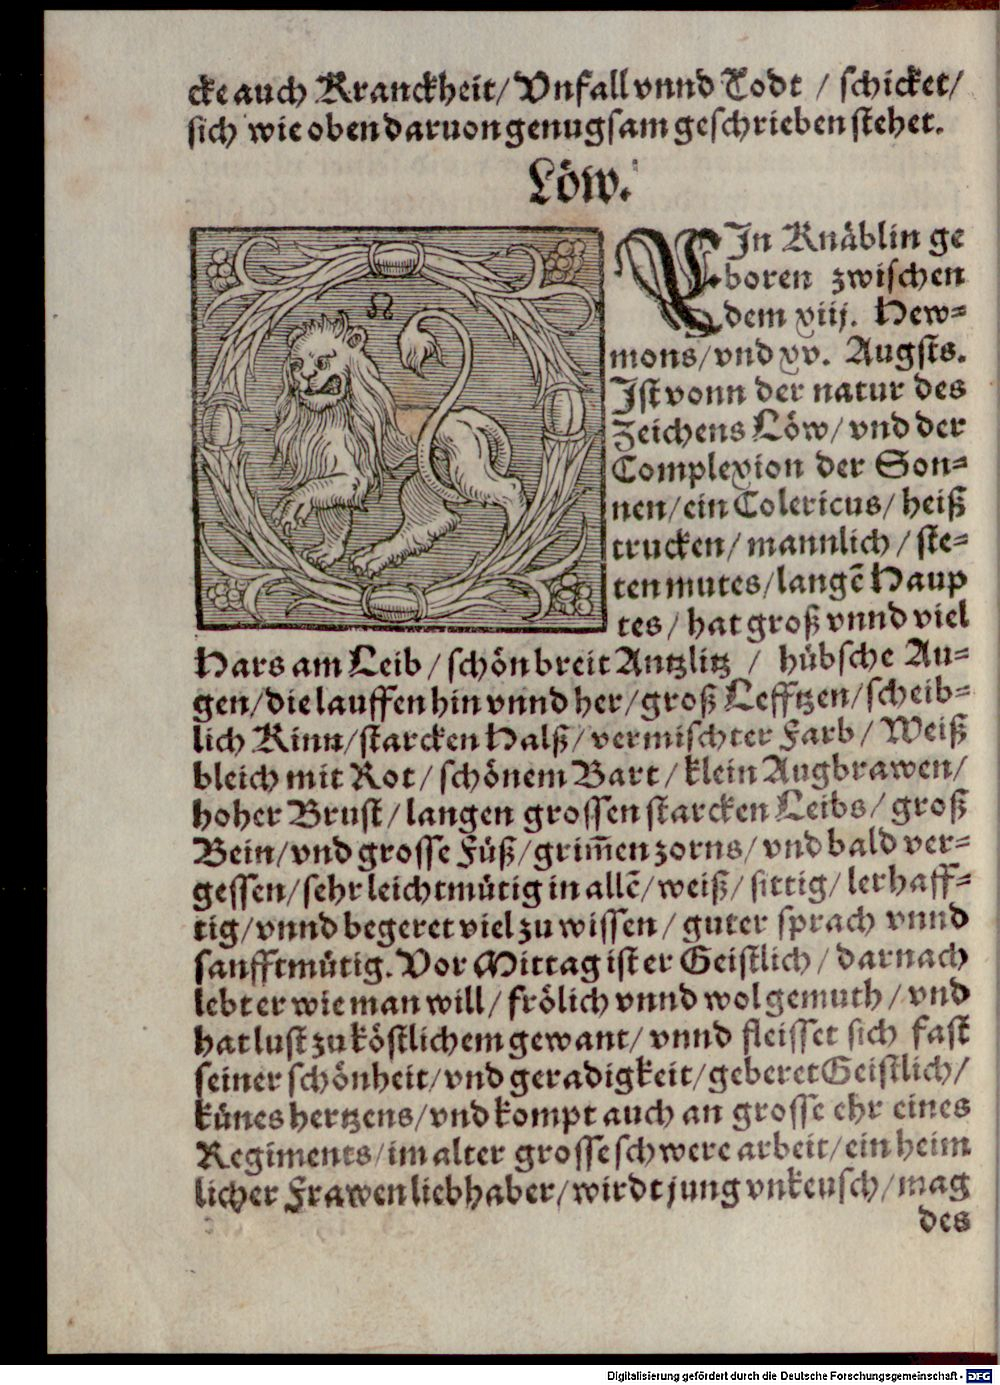 cke auch Kranckheit/ Vnfall vnnd Todt / schicket/
sich wie oben daruon genugsam geschrieben stehet.
Löw.
♌
EIn Knäblin ge
boren zwischen
dem xiij. Hew-
mons/ vnd xv. Augsts.
Ist vonn der natur des
Zeichens Löw/ vnd der
Complexion der Son-
nen/ ein Colericus/ heiß
trucken/ mannlich / ste-
ten mutes/ langē Haup
tes/ hat groß vnnd viel
Hars am Leib / schön breit Antzlitz / hübsche Au-
gen/ die lauffen hin vnnd her/ groß Lefftzen/ scheib-
lich Kinn/ starcken Halß/ vermischter Farb/ Weiß
bleich mit Rot/ schönem Bart/ klein Augbrawen/
hoher Brust/ langen grossen starcken Leibs/ groß
Bein/ vnd grosse Füß/ grim̄en zorns/ vnd bald ver-
gessen/ sehr leichtmütig in allē/ weiß/ sittig/ lerhaff-
tig/ vnnd begeret viel zu wissen/ guter sprach vnnd
sanfftmütig. Vor Mittag ist er Geistlich/ darnach
lebt er wie man will/ frölich vnnd wolgemuth/ vnd
hat lust zu köstlichem gewant/ vnnd fleisset sich fast
seiner schönheit/ vnd geradigkeit/ geberet Geistlich/
künes hertzens/ vnd kompt auch an grosse ehr eines
Regiments/ im alter grosse schwere arbeit/ ein heim
licher Frawen liebhaber/ wirdt jung vnkeusch/ mag
des
Digitalisierung gefördert durch die Deutsche Forschungsgemeinschaft - DFG